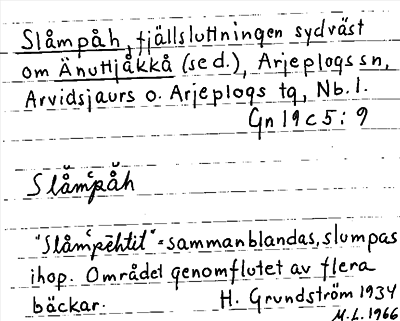 Slåmpåh, fjällsluttningen sydväst
om Änuttjåkkå (se d.), Arjeplogs sn,
Arvidsjaurs o. Arjeplogs tg, Nb. l.
Gn 19 c 5 : 9
Slå̆mʿpå̆h
"Slåmʿpēhtit" = sammanblandas, slumpas
ihop. Området genomflutet av flera
bäckar. H. Grundström 1934
M.L. 1966